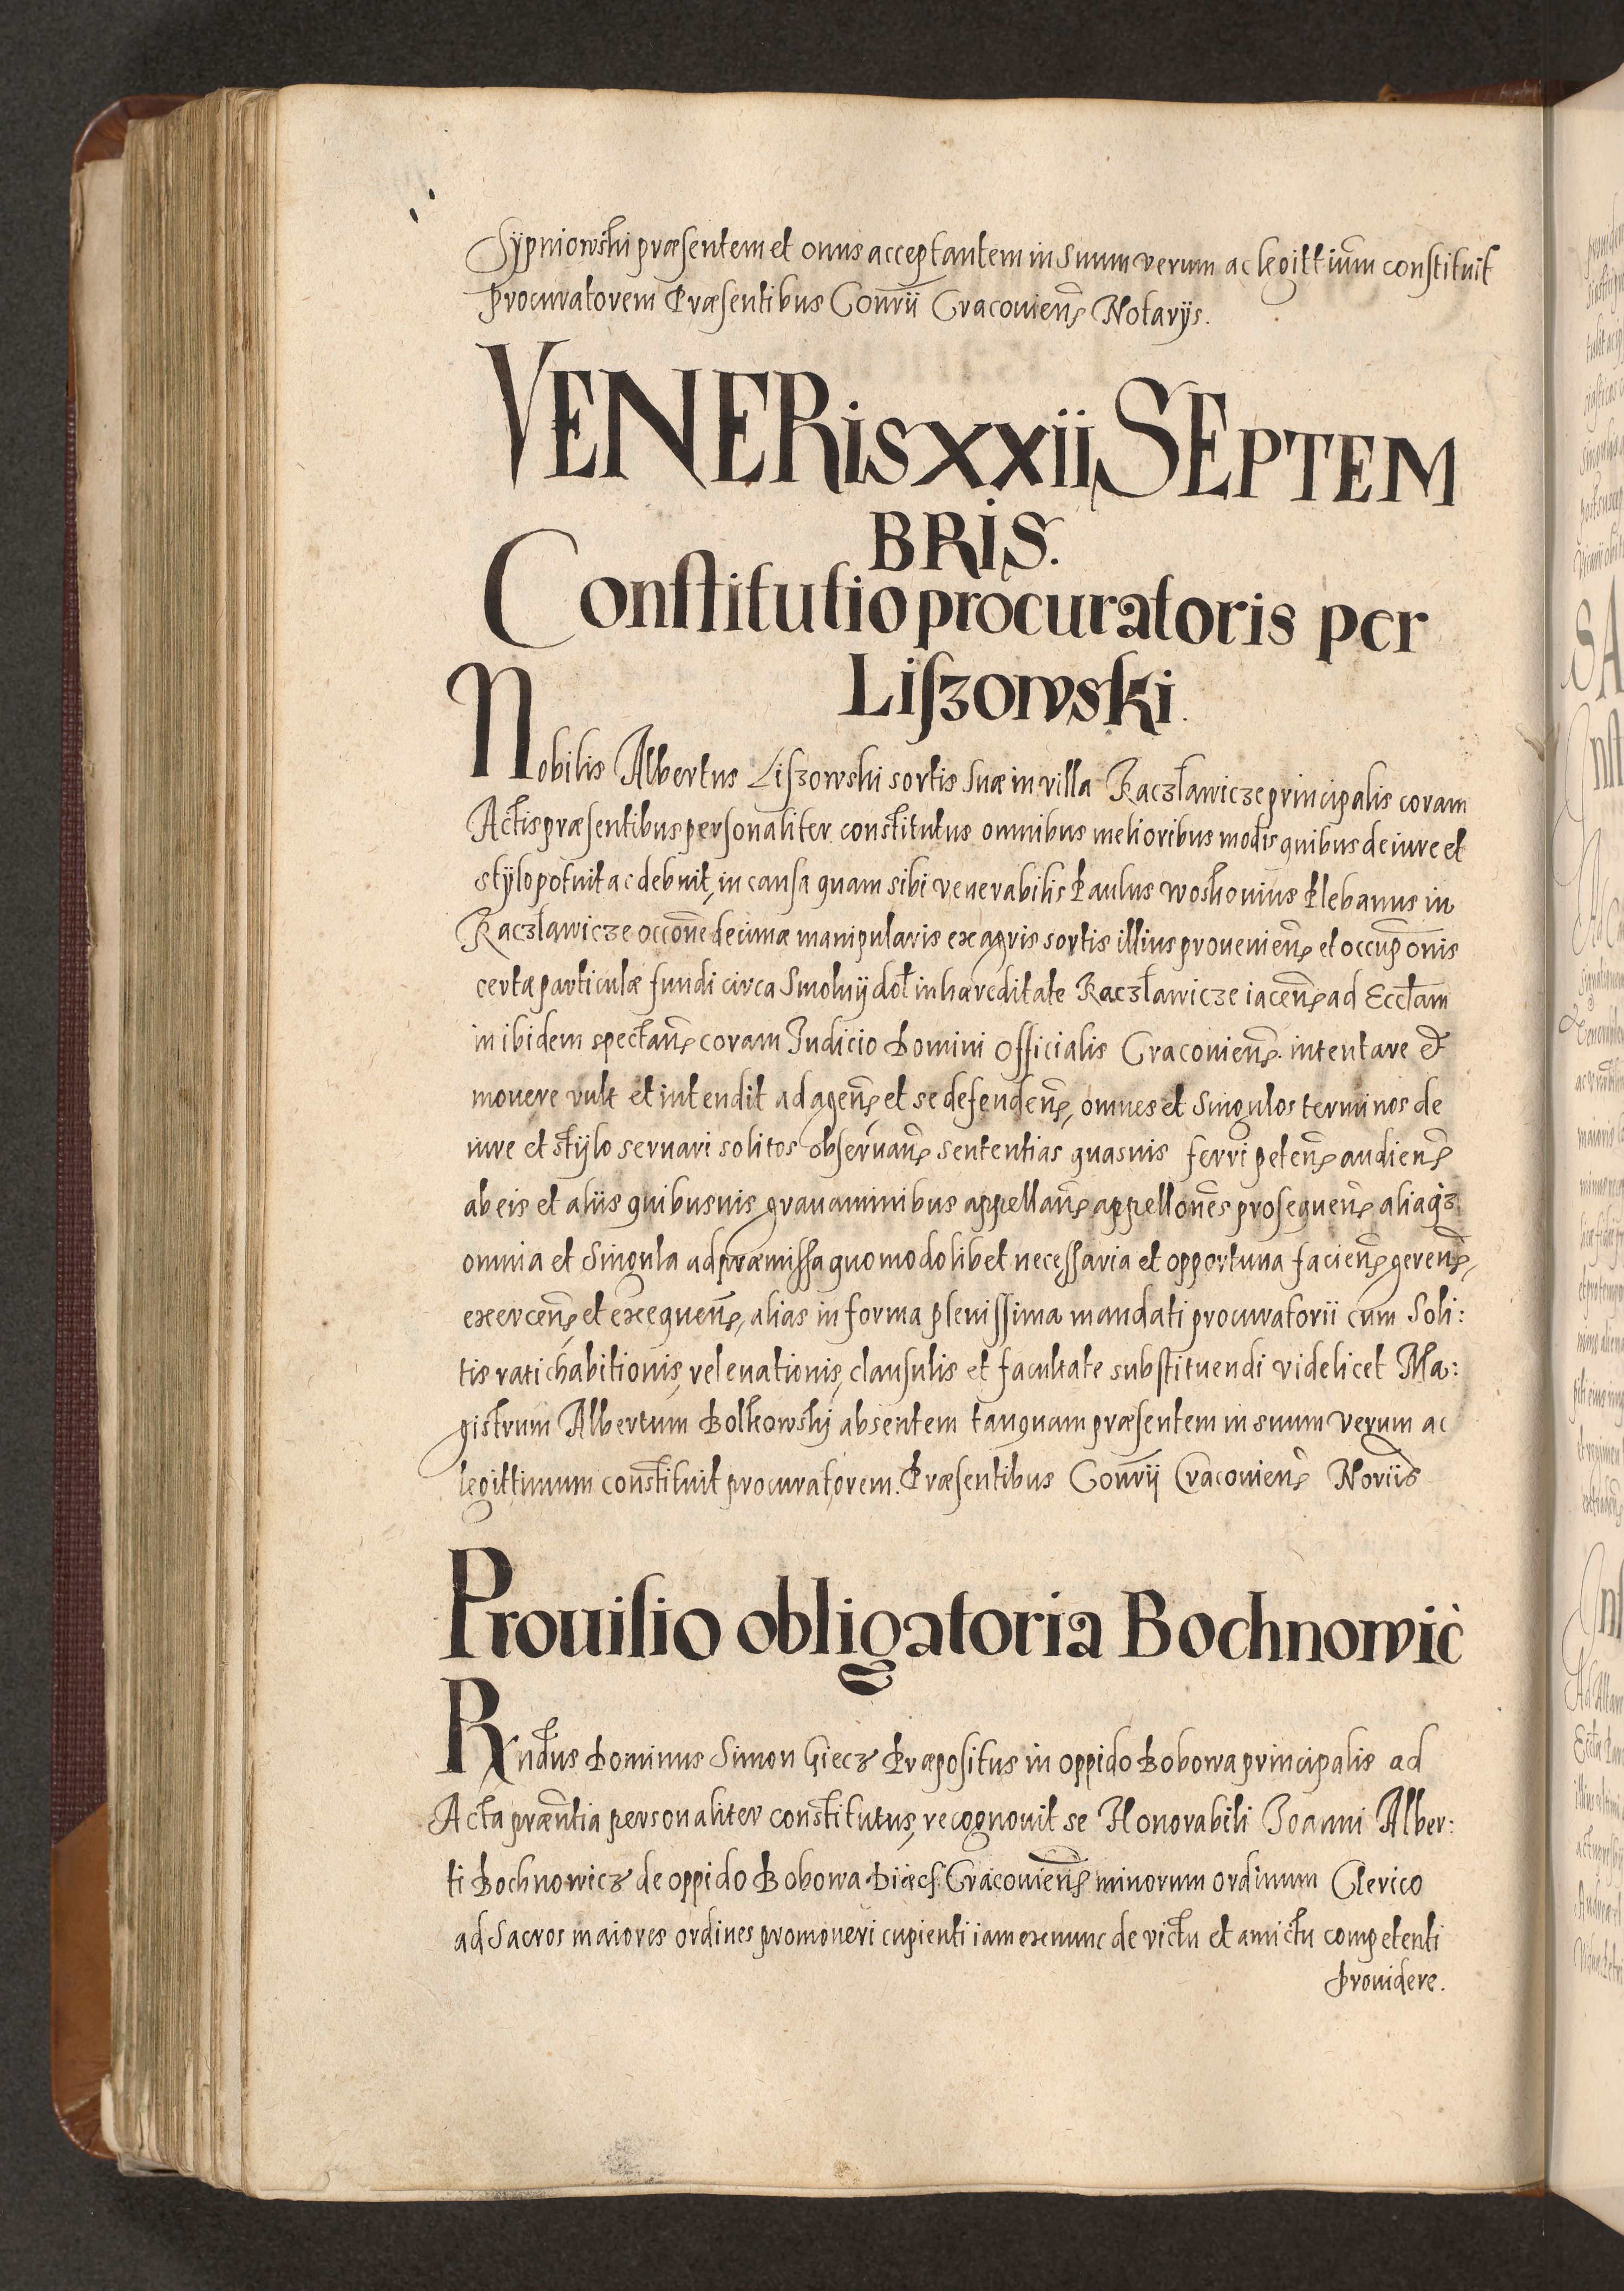 Sypniowski præsentem et onus acceptantem in Suum verum ac legittium̄ constituit
procuratorem Præsentibus Con̄rii Cracovien̄ Notarijs.
VENERIS XXII SEPTEM
BRIS.
Constitutio procuratoris per
Liszowski.
Nobilis Albertus Liszowski sortis Suæ in villa Raczławicze principalis coram
Actis præsentibus personaliter constitutus omnibus melioribus modis quibus de iure et
stÿlo potuit ac debuit, in causa quam sibi venerabilis Paulus Woskovius Plebanus in
Raczławicze occōne decimæ manipularis ex agris sortis illius provenien̄ et occup̄onis
certæ particulæ fundi circa Smolnÿ doł in hæreditate Raczławicze iacen̄ ad Eccłam
in ibidem spectan̄ coram Iudicio Domini Officialis Cracouien̄. intentare et
mouere vult et intendit ad agen̄ et se defenden̄, omnes et Singulos terminos de
iure et stÿlo seruari solitos obseruan̄ sententias quasuis ferri peten̄ audien̄
ab eis et aliis quibusuis grauaminibus appellan̄ appellōnes prosequen̄ aliaq́3
omnia et Singula ad præmissa quomodolibet necessaria et opportuna facien̄ geren̄,
exercen̄ et exequen̄, alias in forma plenissima mandati procuratorii cum Soli:
tis ratihabitionis, releuationis, clausulis et facultate substituendi videlicet Ma:
gistrum Albertum Bolkowskj absentem tanquam præsentem in suum verum ac
legittimum constituit procuratorem. Præsentibus Con̄rij Cracouien̄ Noriis
Prouisio obligatoria Bochnowic̀
Rndus Dominus Simon Giecz Præpositus in oppido Bobowa principalis ad
Acta præn̄tia personaliter constitutus, recognouit se Honorabili Joanni Alber:
ti Bochnowicz de oppido Bobowa Diæcs. Cracouien̄ minorum ordinum Clerico
ad Sacros maiores ordines promoueri cupienti iam ex nunc de victu et amictu competenti
prouidere.